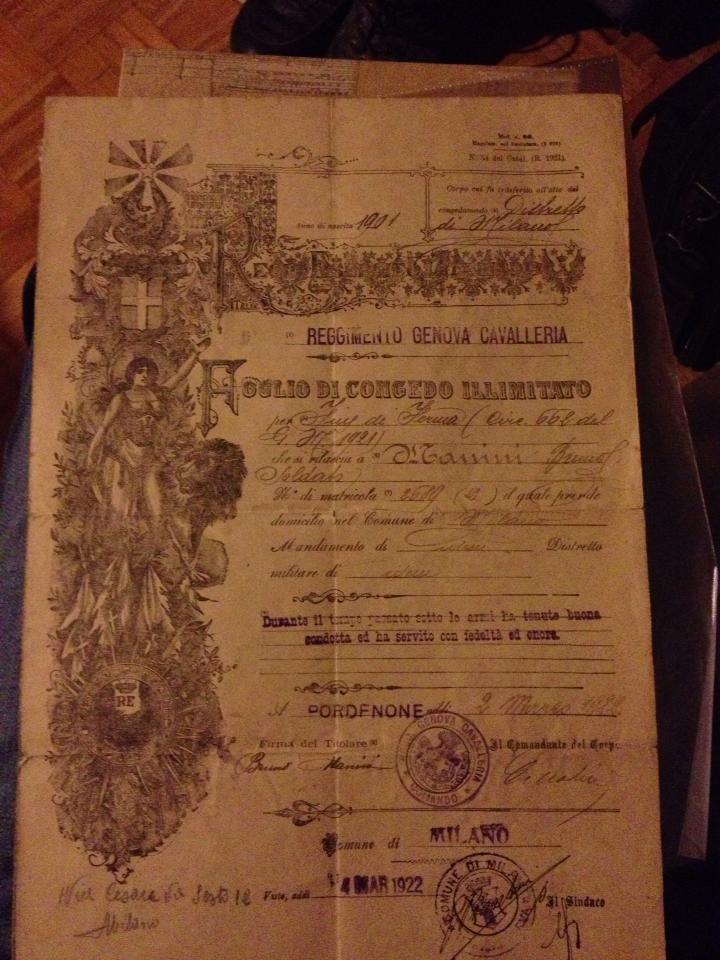 Mod. n.
N. 54 del Catal. (R. 1921).
Corpo cui fu trasferito all'atto del
congedamento Distretto
di Milano
Anno di nascita 1901
REGIO ESERCITO ITALIANO
REGGIMENTO GENOVA CAVALLERIA
FOGLIO DI CONGEDO ILLIMITATO
per Fine di Ferma (Circ. 662 del
G. M. 1921)
che si rilascia a Manini Bruno
Soldato
N° di matricola 2689 (42) il quale prende
domicilio nel Comune di Milano
Mandamento di idem Distretto
militare di idem
Durante il tempo passato sotto le armi ha tenuto buona
condotta ed ha servito con fedeltà ed onore.
A PORDENONE addì 2 Marzo 1922
Firma del Titolare
Il Comandante del Corpo
Bruno Manini
GENOVA CAVALLERIA
COMANDO
Comune di MILANO
Visto, addì 4 MAR 1922
COMUNE DI MILANO
Il Sindaco
RE
Cesare da Sesto 12
Milano